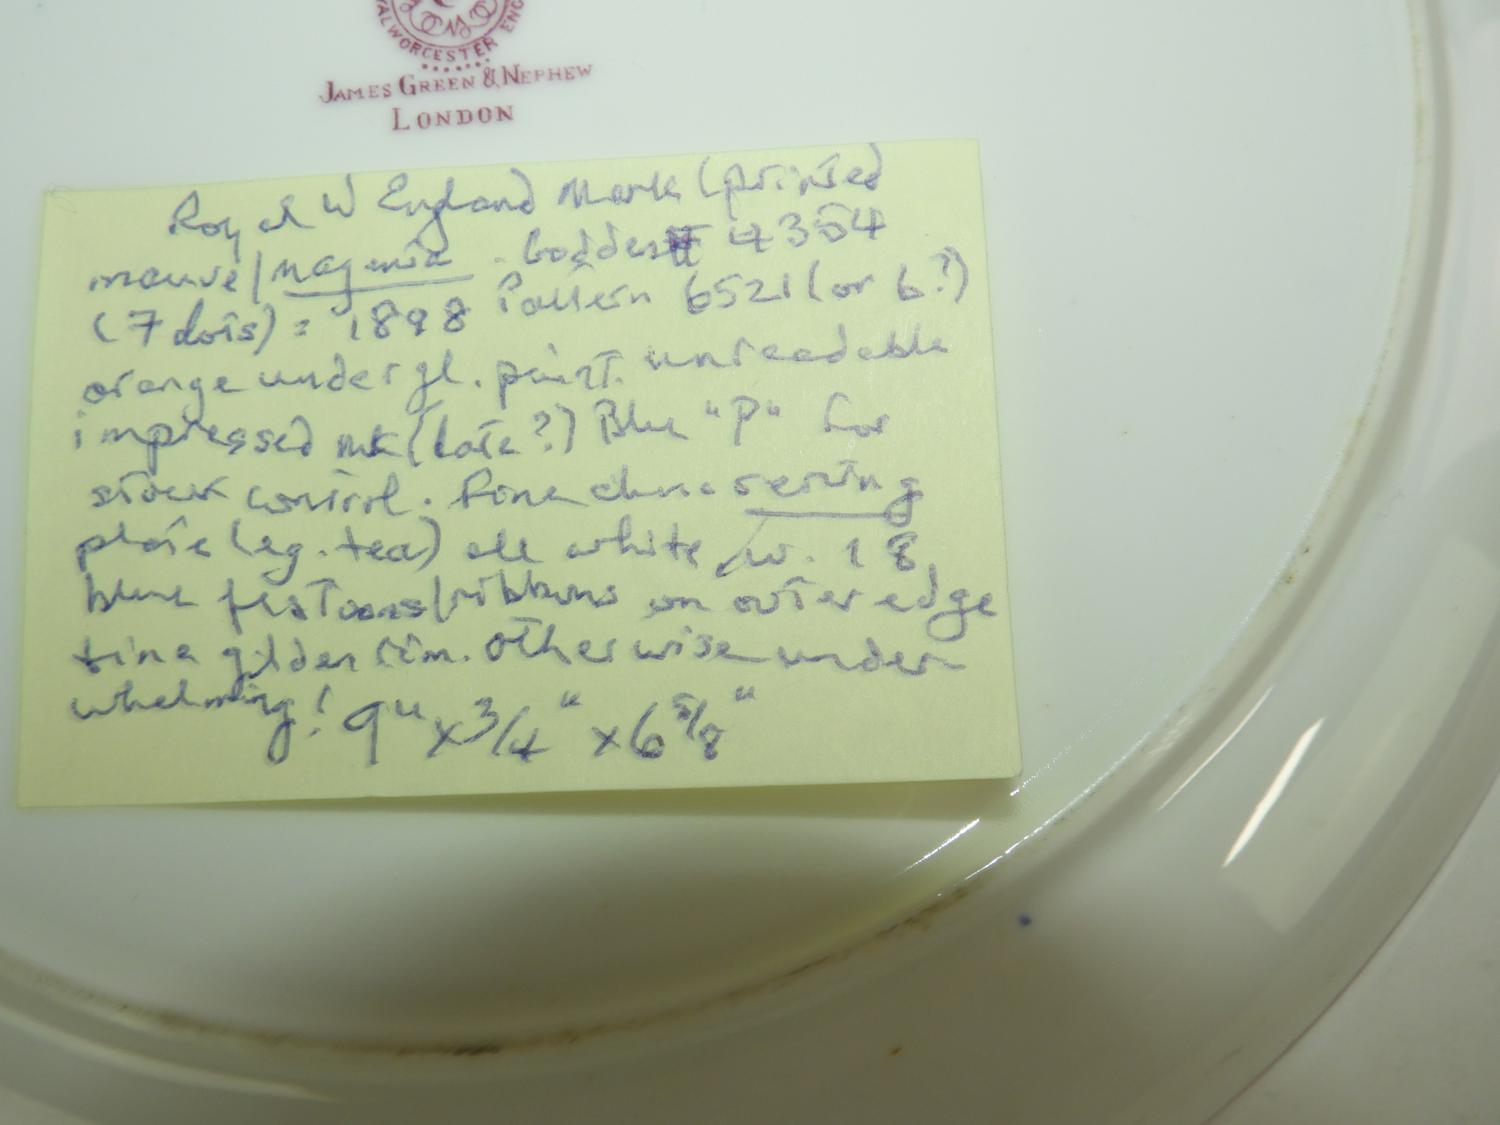 ROYAL WORCESTER ENG
JAMES GREEN & NEPHEW
LONDON
Royal W England Mark (printed
mauve/magenta. Godden # 4354
(7 dots) = 1898 Pattern 6521 (or 6?)
orange undergl. paint. unreadable
impressed mk (date?) Blue "P" for
stock control. Fine china serving
plate (eg. tea) all white w. 18
blue festoons/ribbons on outer edge
fine gilden rim. Otherwise under
whelming! 9" x 3/4" x 6 5/8"